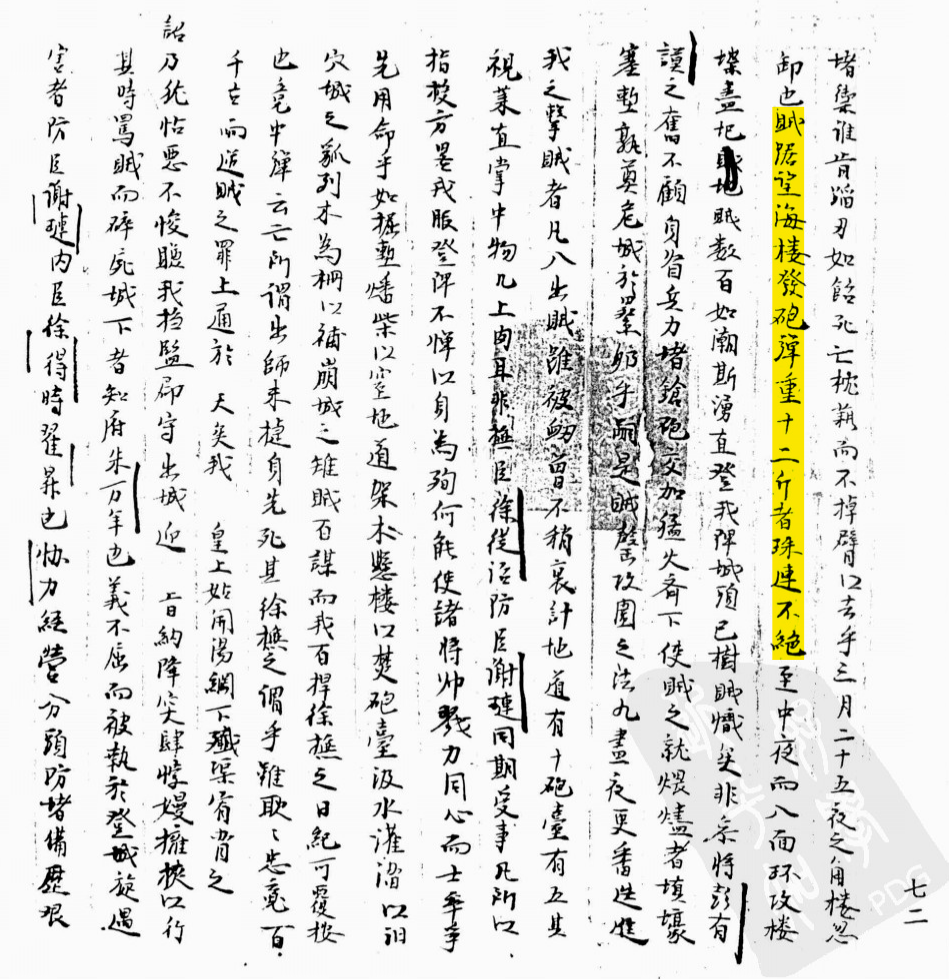 堵禦誰肯蹈刃如飴死亡枕藉而不掉臂以去乎三月二十五夜之角樓忽
卸也賊踞望海楼發砲彈重十二斤者珠連不絶至中夜而八面环攻楼
垛盡圮賊数百如潮斯湧直登我陴城頭已樹賊幟矣非糸将彭有
謨之奮不顧身省兵力堵鎗砲交加猛火齐下使賊之就煨燼者填壕
塞塹孰奠危城於纍卵乎嗣是賊攻圍之法九盡夜更番迭進
我之擊賊者凡八出賊雖被衂曾不稍衰計地道有十砲臺有五其
視莱直掌中物几上肉耳非撫臣徐從治防臣謝璉同期受事凡所以
指授方畧戎服登陴不憚以身為殉何能使諸将帅戮力同心而士卒争
先用命乎如掘塹燔柴以空地道架木懸楼以焚砲臺汲水灌溜以汨
穴城之孤列木為栅以補崩城之雉賊百謀而我百捍徐撫之日紀可覆按
也竟中彈云亡所謂出師未捷身先死其徐撫之謂乎雖耿耿忠竟百
千古而逆賊之罪上通於 天矣我 皇上姑開湯網下殲渠宥脅之
詔乃犹怙惡不悛聽我挡監邵守出城迎 旨納降突肆悖嫚擁挾以行
其時罵賊而碎死城下者知府朱万年也義不屈而被執於登城旋遇
害者防臣謝璉内臣徐得時翟昇也协力経營分頭防堵備歷艰
七二
PDG